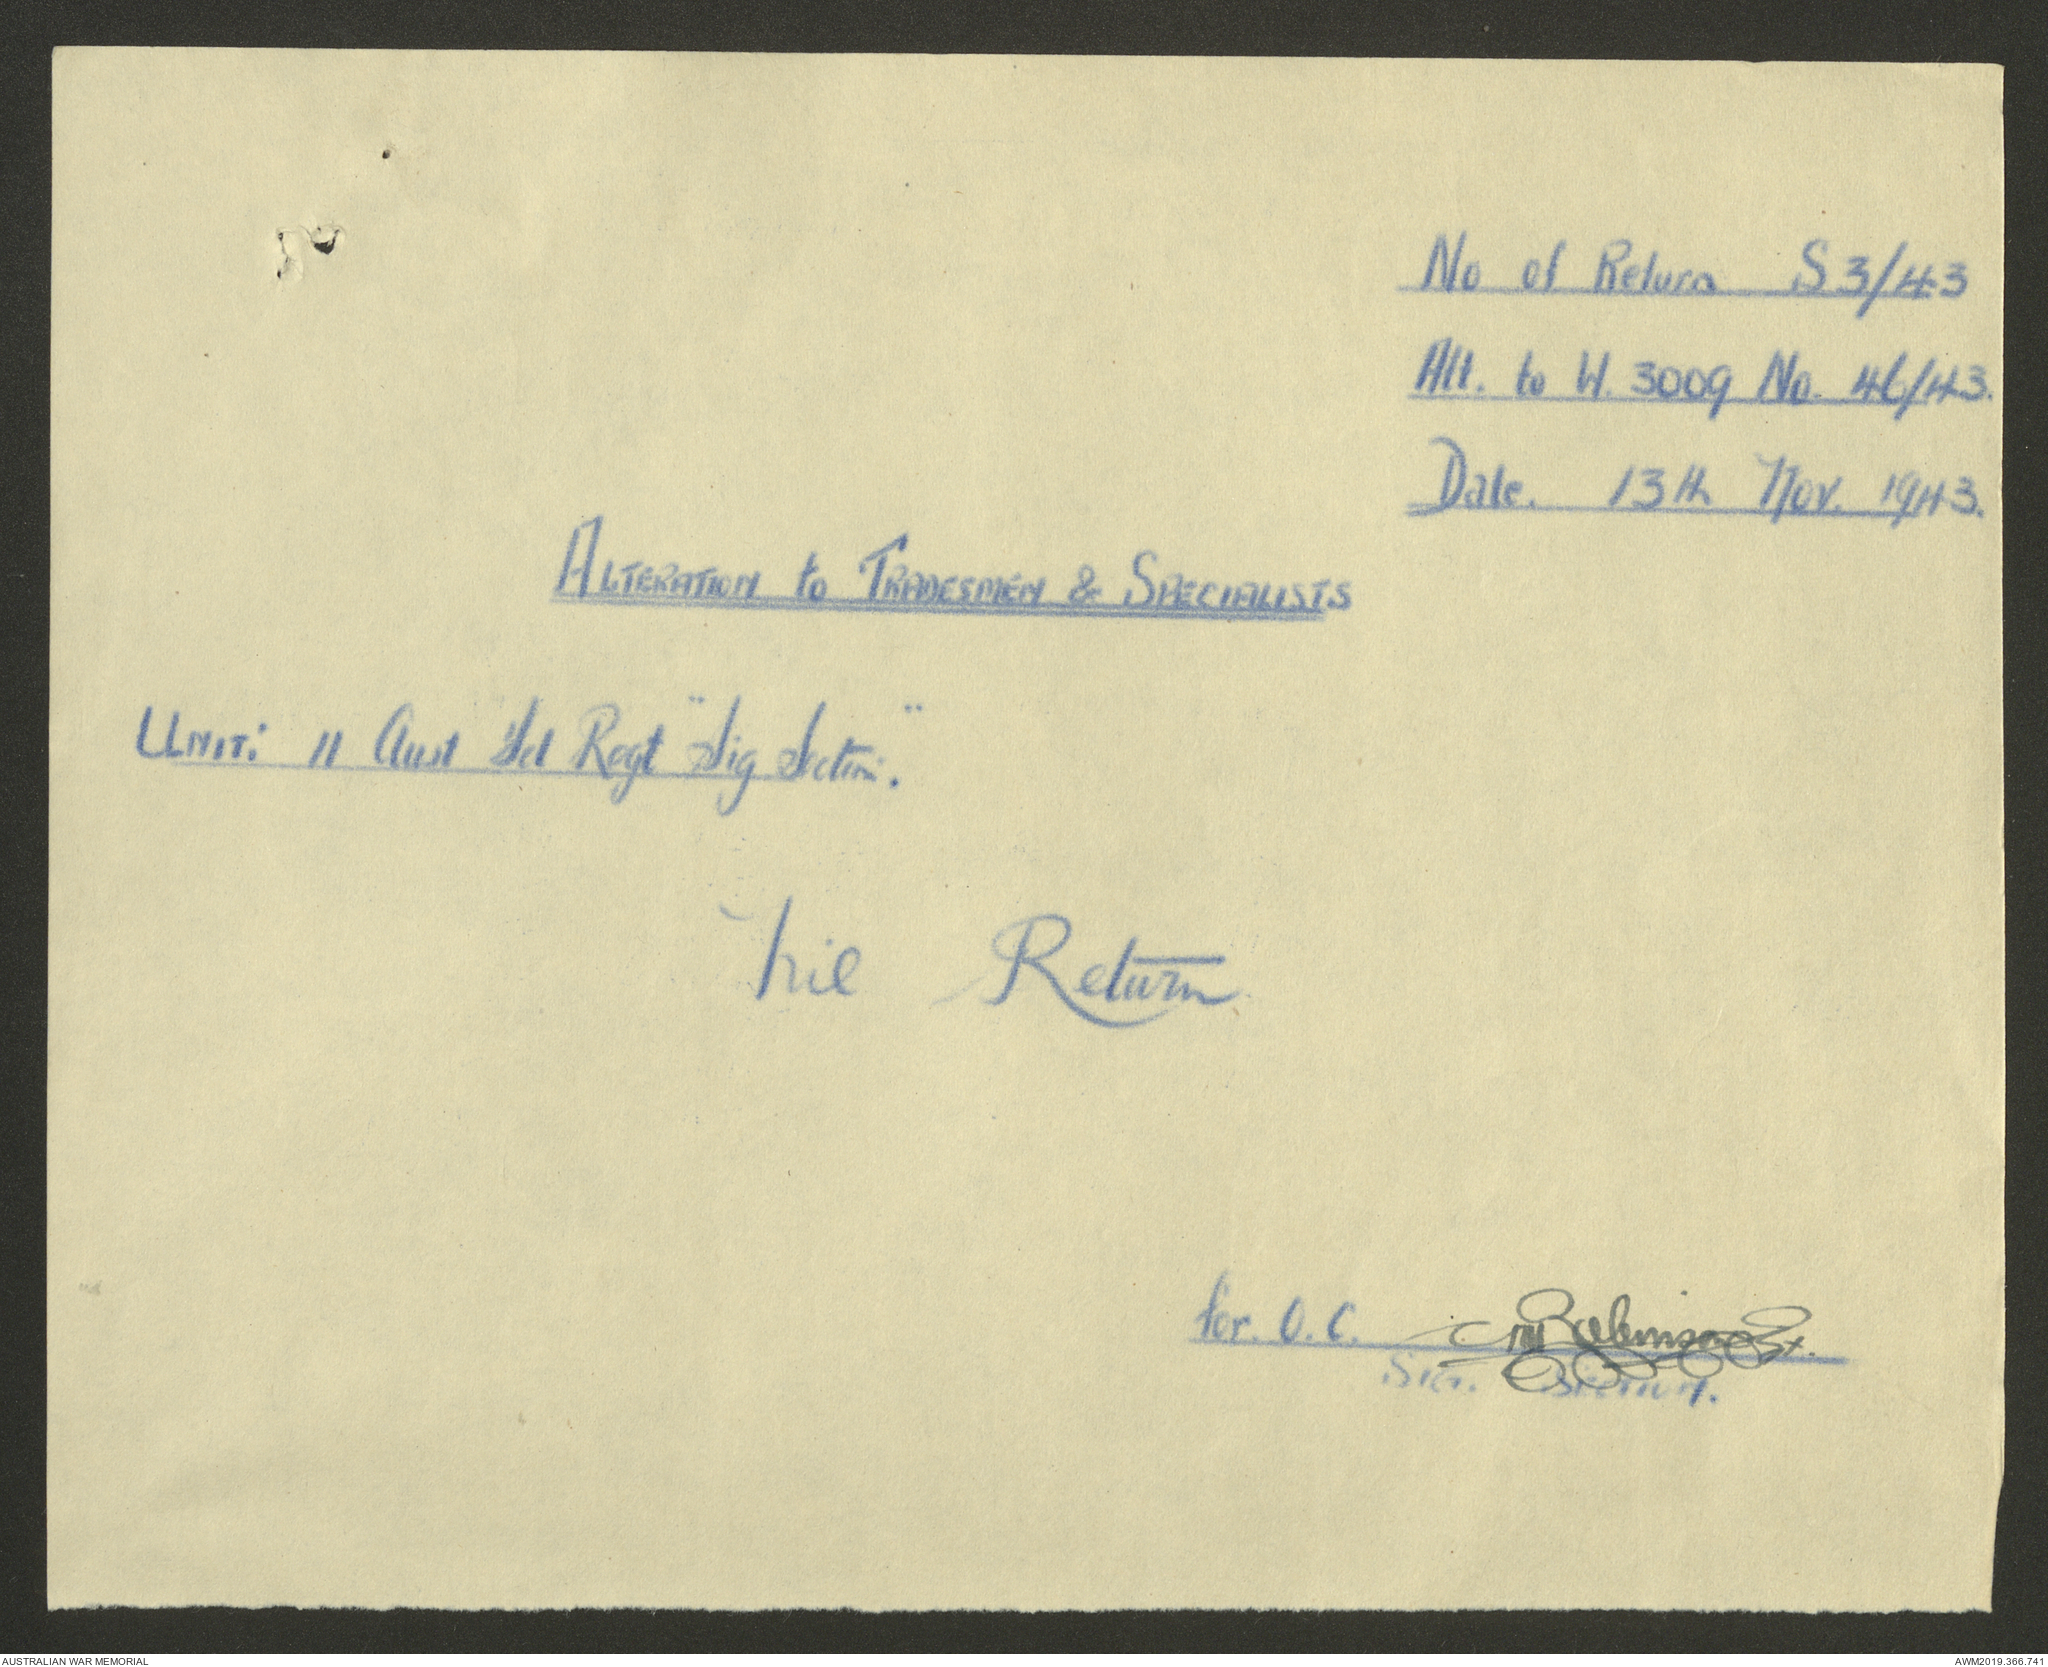 No of Return S3/43
Alt. to W. 3009 No. 46/43.
Date. 13th Nov. 1943.
ALTERATION to TRADESMEN & SPECIALISTS
UNIT: 11 Aust Fd Regt "Sig Section."
Nil Return
for. O. C. Robinson Lt.
SIG. SECTION.
AUSTRALIAN WAR MEMORIAL
AWM2019.366.741